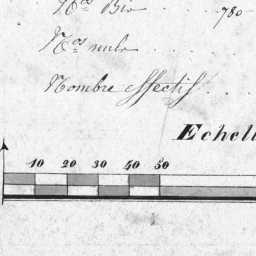 Nos Bis . . . . 780
Nos nuls . . . .
Nombre effectif . . .
Echell
10 20 30 40 50